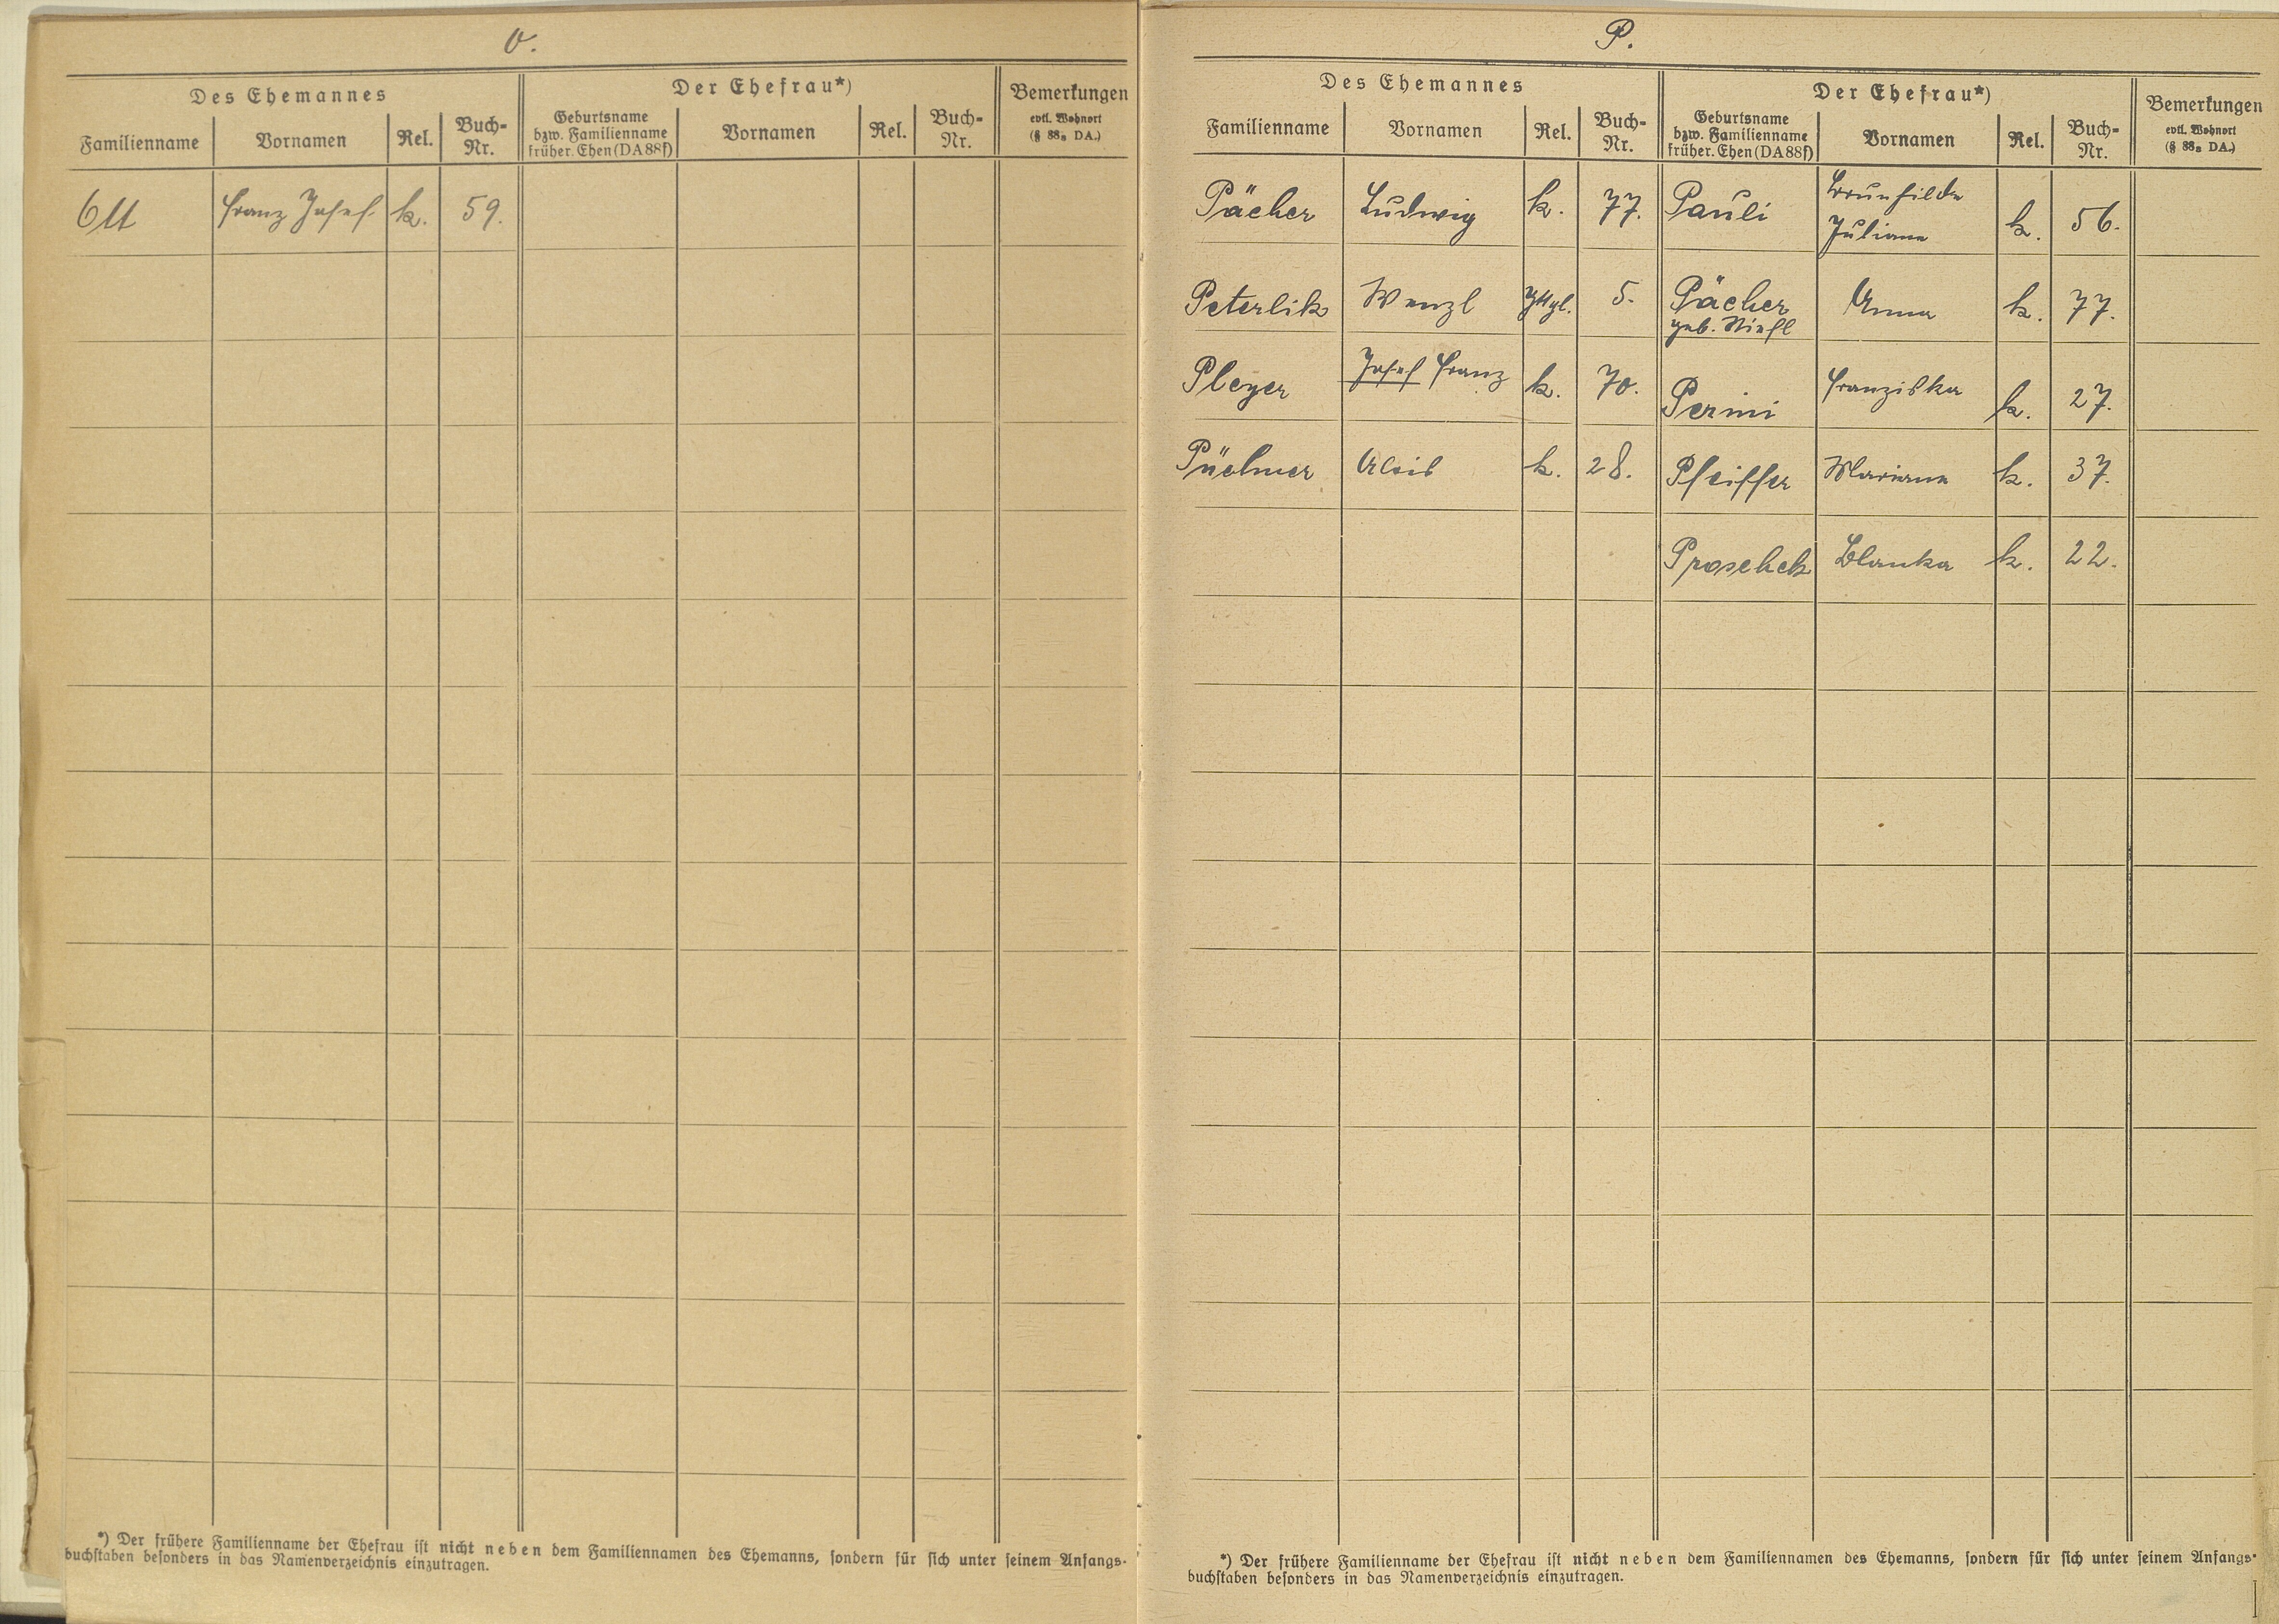 O.
Des Ehemannes
Der Ehefrau*)
Bemerkungen
evtl. Wohnort
(§ 88₈ DA.)
Familienname Vornamen Rel. Buch-
Nr.
Geburtsname
bzw. Familienname
früher. Ehen (DA 88f)
Vornamen Rel. Buch-
Nr.
Ott Franz Josef. k. 59.
*) Der frühere Familienname der Ehefrau ist nicht neben dem Familiennamen des Ehemanns, sondern für sich unter seinem Anfangs-
buchstaben besonders in das Namenverzeichnis einzutragen.
P.
Des Ehemannes
Der Ehefrau*)
Bemerkungen
evtl. Wohnort
(§ 88₈ DA.)
Familienname Vornamen Rel. Buch-
Nr.
Geburtsname
bzw. Familienname
früher. Ehen (DA 88f)
Vornamen Rel. Buch-
Nr.
Pächer Ludwig k. 77. Pauli Brunhilde
Juliana k. 56.
Peterlik Wenzl 5. Pächer Anna k. 77.
geb.
Pleyer Josef Franz k. 70. Perini Franziska k. 27.
Püchner Alois k. 28. Pfeiffer Mariana k. 37.
Proschek Blanka k. 22.
*) Der frühere Familienname der Ehefrau ist nicht neben dem Familiennamen des Ehemanns, sondern für sich unter seinem Anfangs-
buchstaben besonders in das Namenverzeichnis einzutragen.